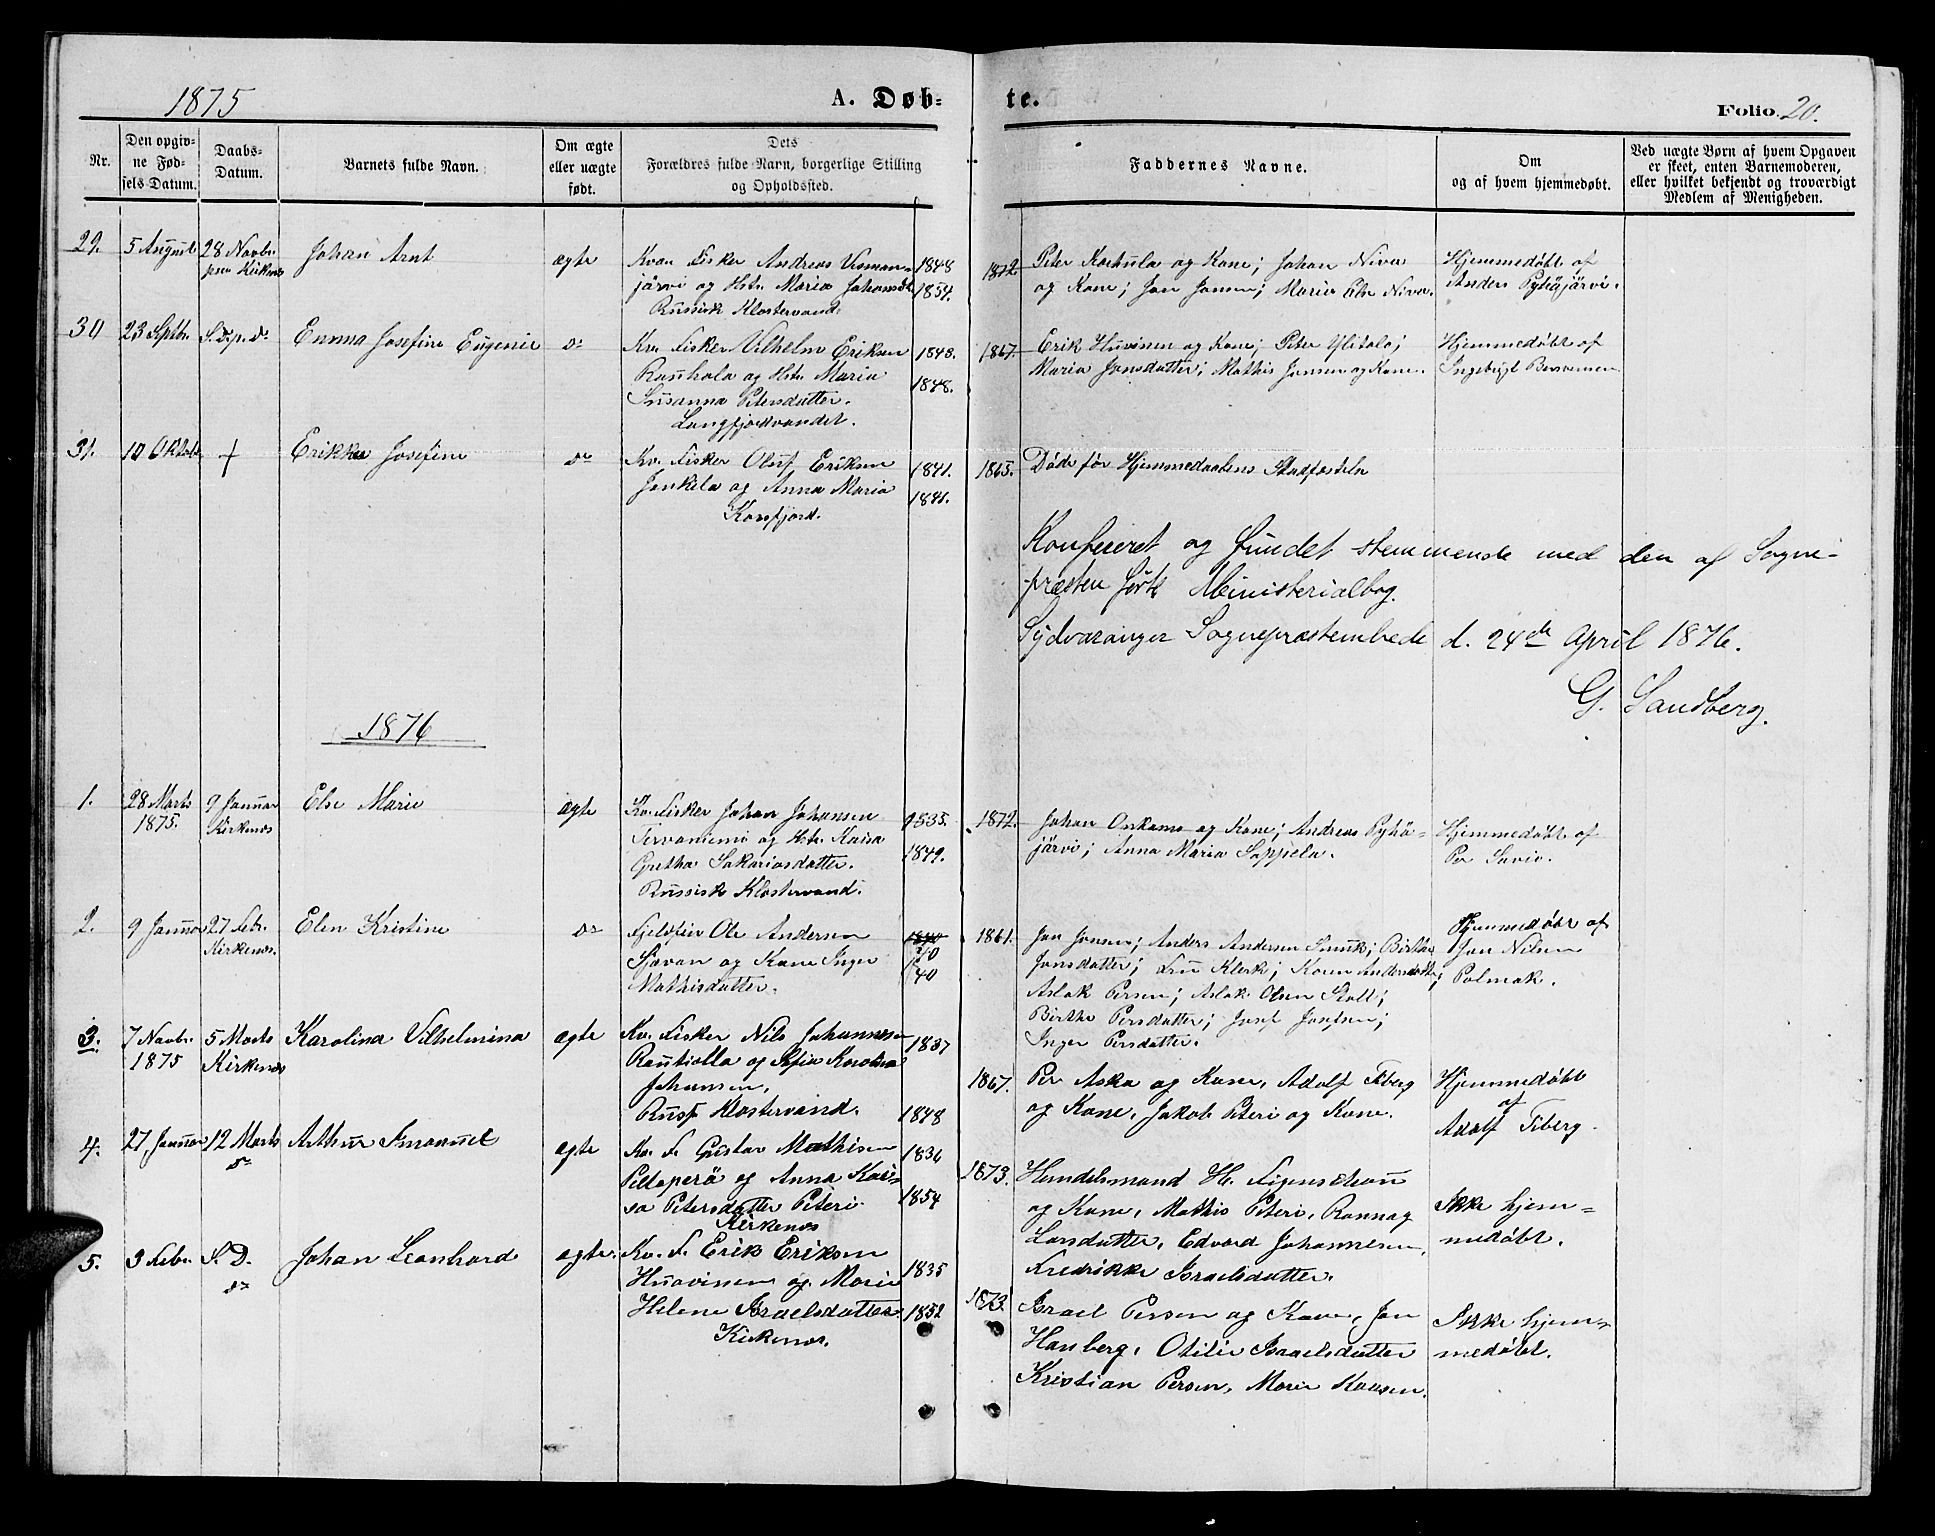 1875
A. Døb-
te.
Folio 20.
Nr.
Den opgiv-
ne Fød-
sels-Datum.
Daabs-
Datum.
Barnets fulde Navn.
Om ægte
eller uægte
født.
Dets
Forældres fulde Navn, borgerlige Stilling
og Opholdssted.
Faddernes Navne.
Om
og af hvem hjemmedøbt.
Ved uægte Børn af hvem Opgaven
er skeet, enten Barnemoderen,
eller hvilket bekjendt og troværdigt
Medlem af Menigheden.
29.
5 August
28 Novbr.
Kirkenes
Johan Arnt
ægte
Kvæn Fisker Andreas
järvi og Hstr. Maria Johansdt.
Russisk Klostervand.
1848
1854.
1872
Peter Karhula og Kone; Johan Niva
og Kone; Jon Jonsen; Maria Else Niva.
Hjemmedøbt af
Anders Pyhäjärvi.
30
23 Septbr.
S. D. p. do
Emma Josefine Eugenie
do
Kv. Fisker Vilhelm Eriksen
Rauhala og Hstr. Maria
Susanna Petersdatter.
Langfjordvandet.
1848.
1848.
1867.
Erik Huvinen og Kone; Peter Ylitalo;
Maria Jonsdatter; Mathis Jonsen og Kone.
Hjemmedøbt af
Ingebrigt
31.
10 Oktob.
+
Erikka Josefine
do
Kv. Fisker Oluf Eriksen
Jankila og Anna Maria
Korsfjord.
1841.
1841.
1865.
Døde før Hjemmedaabens Stadfæstelse
Konfereret og fundet stemmende med den af Sogne-
præsten førte Ministerialbog.
Sydvaranger Sognepræstembede d. 24de April 1876.
G. Sandberg.
1876
1.
28 Marts
1875.
9 Januar
Kirkenes
Else Marie
ægte
Kv. Fisker Johan Johansen
Tervaniemi og Hstr. Kaisa
Gretha Sakariasdatter.
Russisk Klostervand.
1835.
1849.
1872.
Johan Onkamo og Kone; Andreas Pyhä-
järvi; Anna Maria Sappela.
Hjemmedøbt af
Per Savio.
2.
9 Januar
27 Febr.
Kirkenes.
Elen Kristine
do
Fjeldfin Ole Andersen
Sjavan og Kone Inger
Mathisdatter.
40
40
1861.
Jon Jonsen; Anders Andersen Smuk; Birthe
Jonsdatter; Fru Klerk; Karen Andersdatter;
Aslak Persen; Aslak Olsen Stall;
Birthe Persdatter; Josef Josefsen;
Inger Persdatter.
Hjemmedøbt af
Jon Nilsen
Polmak.
3.
7 Novbr.
1875
5 Marts
Kirkenes
Karolina Vilhelmina
ægte
Kv. Fisker Nils Johannesen
Rautiolla og Sofia Karolina
Johansen,
Russ. Klostervand.
1837
1848
1867.
Per Aska og Kone, Adolf Fiberg
og Kone, Jakob Peteri og Kone.
Hjemmedøbt
af
Adolf Fiberg.
4.
27 Januar
12 Marts
do
Arthur Emanuel
ægte
Kv. F. Gustav Mathisen
Peltoperä og Anna Kai-
sa Petersdatter Peteri
Kirkenes
1836
1854
1873.
Handelsmand H. Figenschau
og Kone, Mathis Peteri, Rannag
Larsdatter, Edvard Johannesen,
Fredrikke Israelsdatter.
Ikke hjem-
medøbt.
5.
3 Febr.
S. D.
do
Johan Leonhard
ægte.
Kv. F. Erik Eriksen
Huovinen og Marie
Helene Israelsdatter
Kirkenes.
1835
1852
1873
Israel Persen og Kone, Jon
Hanberg, Otilie Israelsdatter
Kristian Persen, Marie Kaasen.
Ikke hjem-
medøbt.